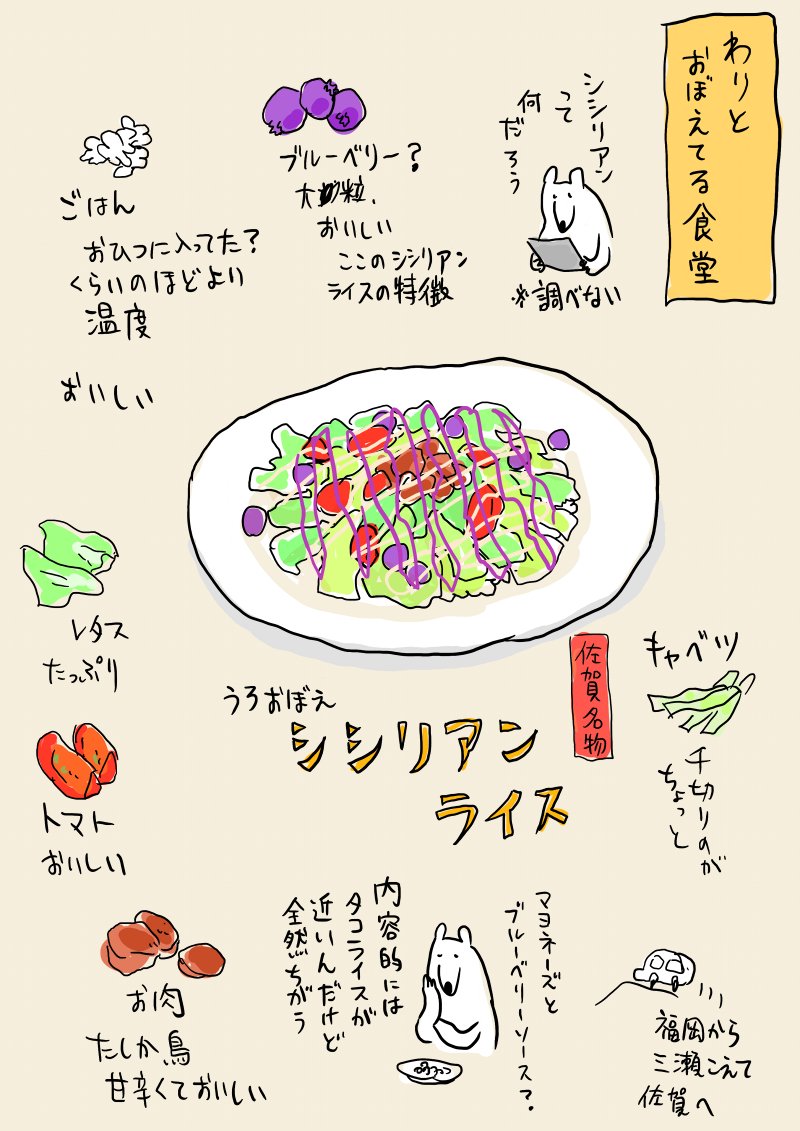 わりと
おぼえてる食堂
シシリアン
って
何
だろう
※調べない
ブルーベリー?
大粒、
おいしい
ここのシシリアン
ライスの特徴
ごはん
おひつに入ってた?
くらいのほどよい
温度
おいしい
レタス
たっぷり
トマト
おいしい
うろおぼえ
シシリアン
ライス
佐賀名物
キャベツ
千切りのが
ちょっと
お肉
たしか鳥
甘辛くておいしい
マヨネーズと
ブルーベリーソース?
内容的には
タコライスが
近いんだけど
全然ちがう
福岡から
三瀬こえて
佐賀へ